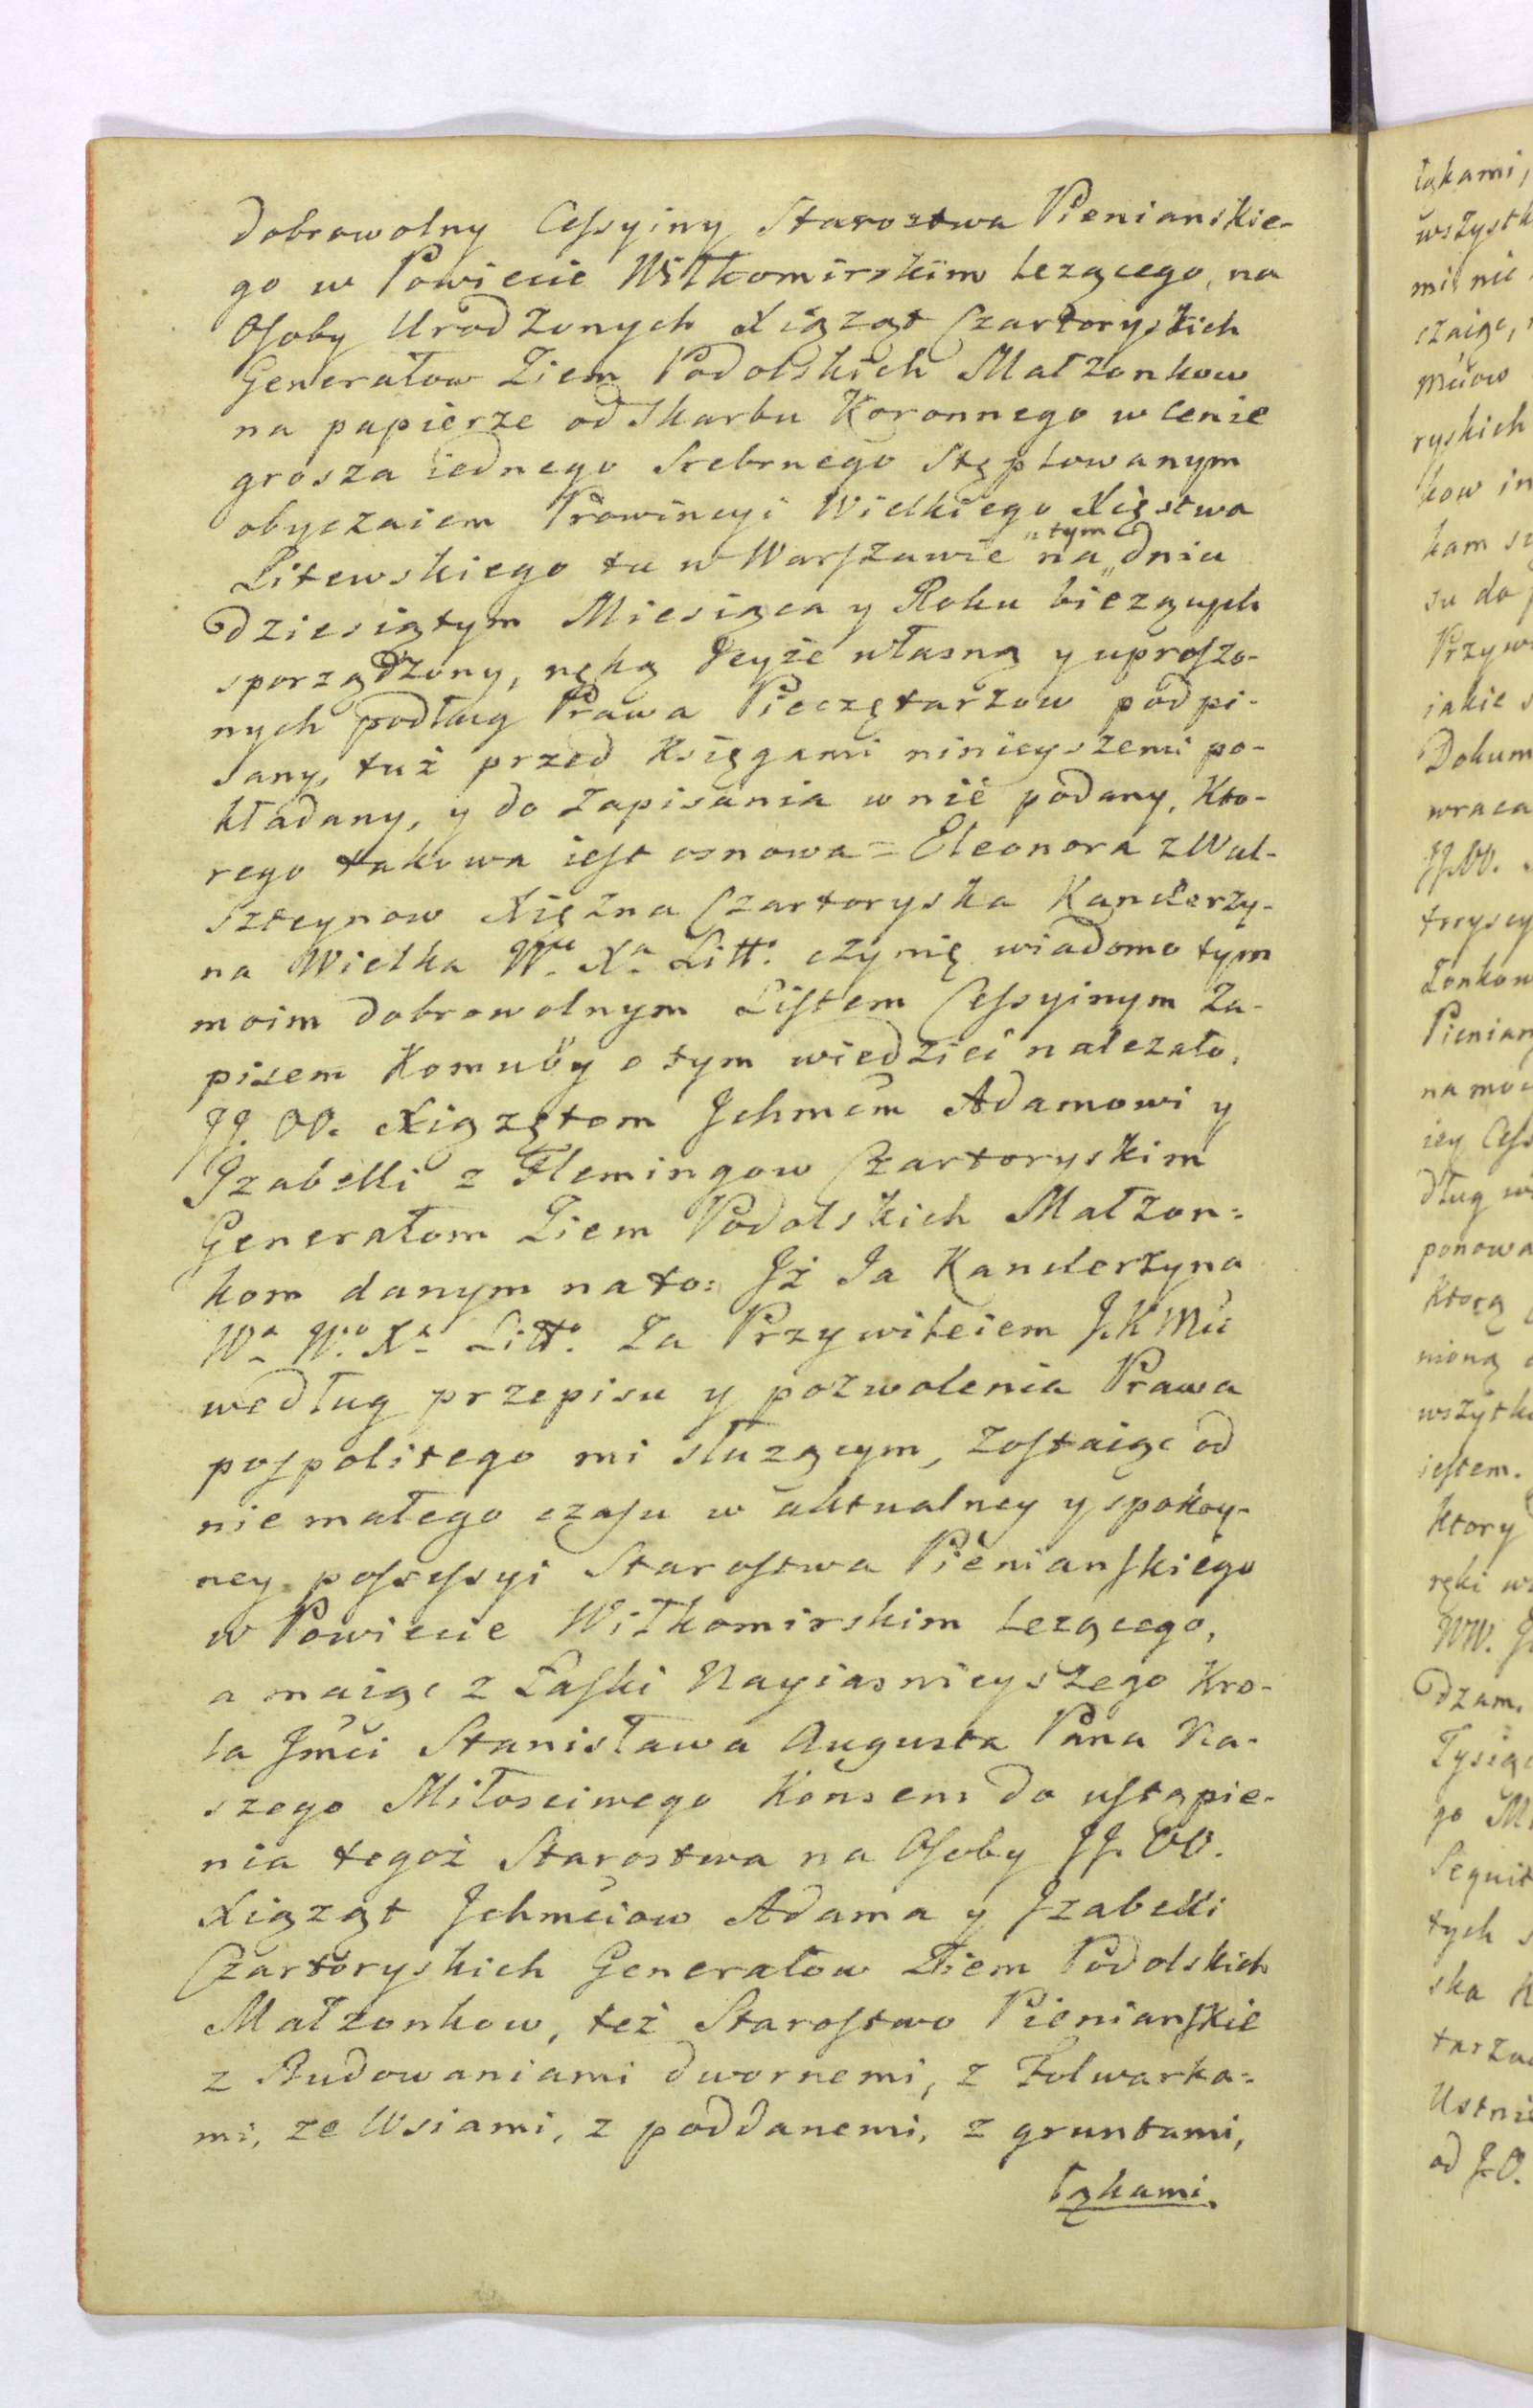 dobrowolny Cessyiny Starostwa Pienianskie-
go w Powiecie Wiłkomirskim leżącego, na
Osoby Urodzonych Xiążąt Czartoryskich
Generałow Ziem Podolskich Małżonkow
na papierze od Skarbu Koronnego w cenie
grosza iednego Srebrnego Stęplowanym
obyczaiem Prowincyi Wielkiego Xięstwa
Litewskiego tu w Warszawie na tym dniu
dziesiątym Miesiąca y Roku bieżących
sporządzony, ręką Teyże własną y uproszo-
nych podług Prawa Pieczętarzow podpi-
sany, tuż przed Księgami ninieyszemi po-
kładany, y do zapisania w nie podany, Kto-
rego takowa iest osnowa = Eleonora z Wal-
szteynow Xiężna Czartoryska Kanclerzy-
na Wielka W. Xa Litt: czynię wiadomo tym
moim dobrowolnym Listem Cessyinym Za-
pisem Komuby o tym wiedzieć należało,
JJ. OO. Xiążętom Ichmcm Adamowi y
Izabelli z Flemingow Czartoryskim
Generałom Ziem Podolskich Małżon=
kom danym na to: Iż Ja Kanclerzyna
Wa Wo Xa Litto Za Przywileiem J.K Mci
według przepisu y pozwolenia Prawa
pospolitego mi służącym, zostaiąc od
nie małego czasu w aktualney y spokoy-
ney possessyi Starostwa Pienianskiego
w Powiecie Wiłkomirskim leżącego,
a maiąc z Łaski Nayiasnieyszego Kro-
la Jmci Stanisława Augusta Pana Na-
szego Miłosciwego Konsens do ustąpie-
nia tegoż Starostwa na Osoby JJ. OO.
Xiążąt Ichmciow Adama y Izabelli
Czartoryskich Generałow Ziem Podolskich
Małżonkow, też Starostwo Pienianskie
z Budowaniami dwornemi, z Folwarka=
mi, ze Wsiami, z poddanemi, z gruntami,
łąkami
łąkami,
wszystk
mi nie
czaiąc,
Mciow
ryskich
kow in
kam
su do
Przyw
iakie s
Dokum
wraca
JJ. OO.
toryscy
żonkow
Pienian
na moc
iey Cess
dług w
ponowa
ktorą
nioną
wszytk
iestem.
ktory
ręki w
WW. J
dzam.
Tysiąc
go M
Sequit
tych s
ska K
tarzow
Ustnie
od J.O.